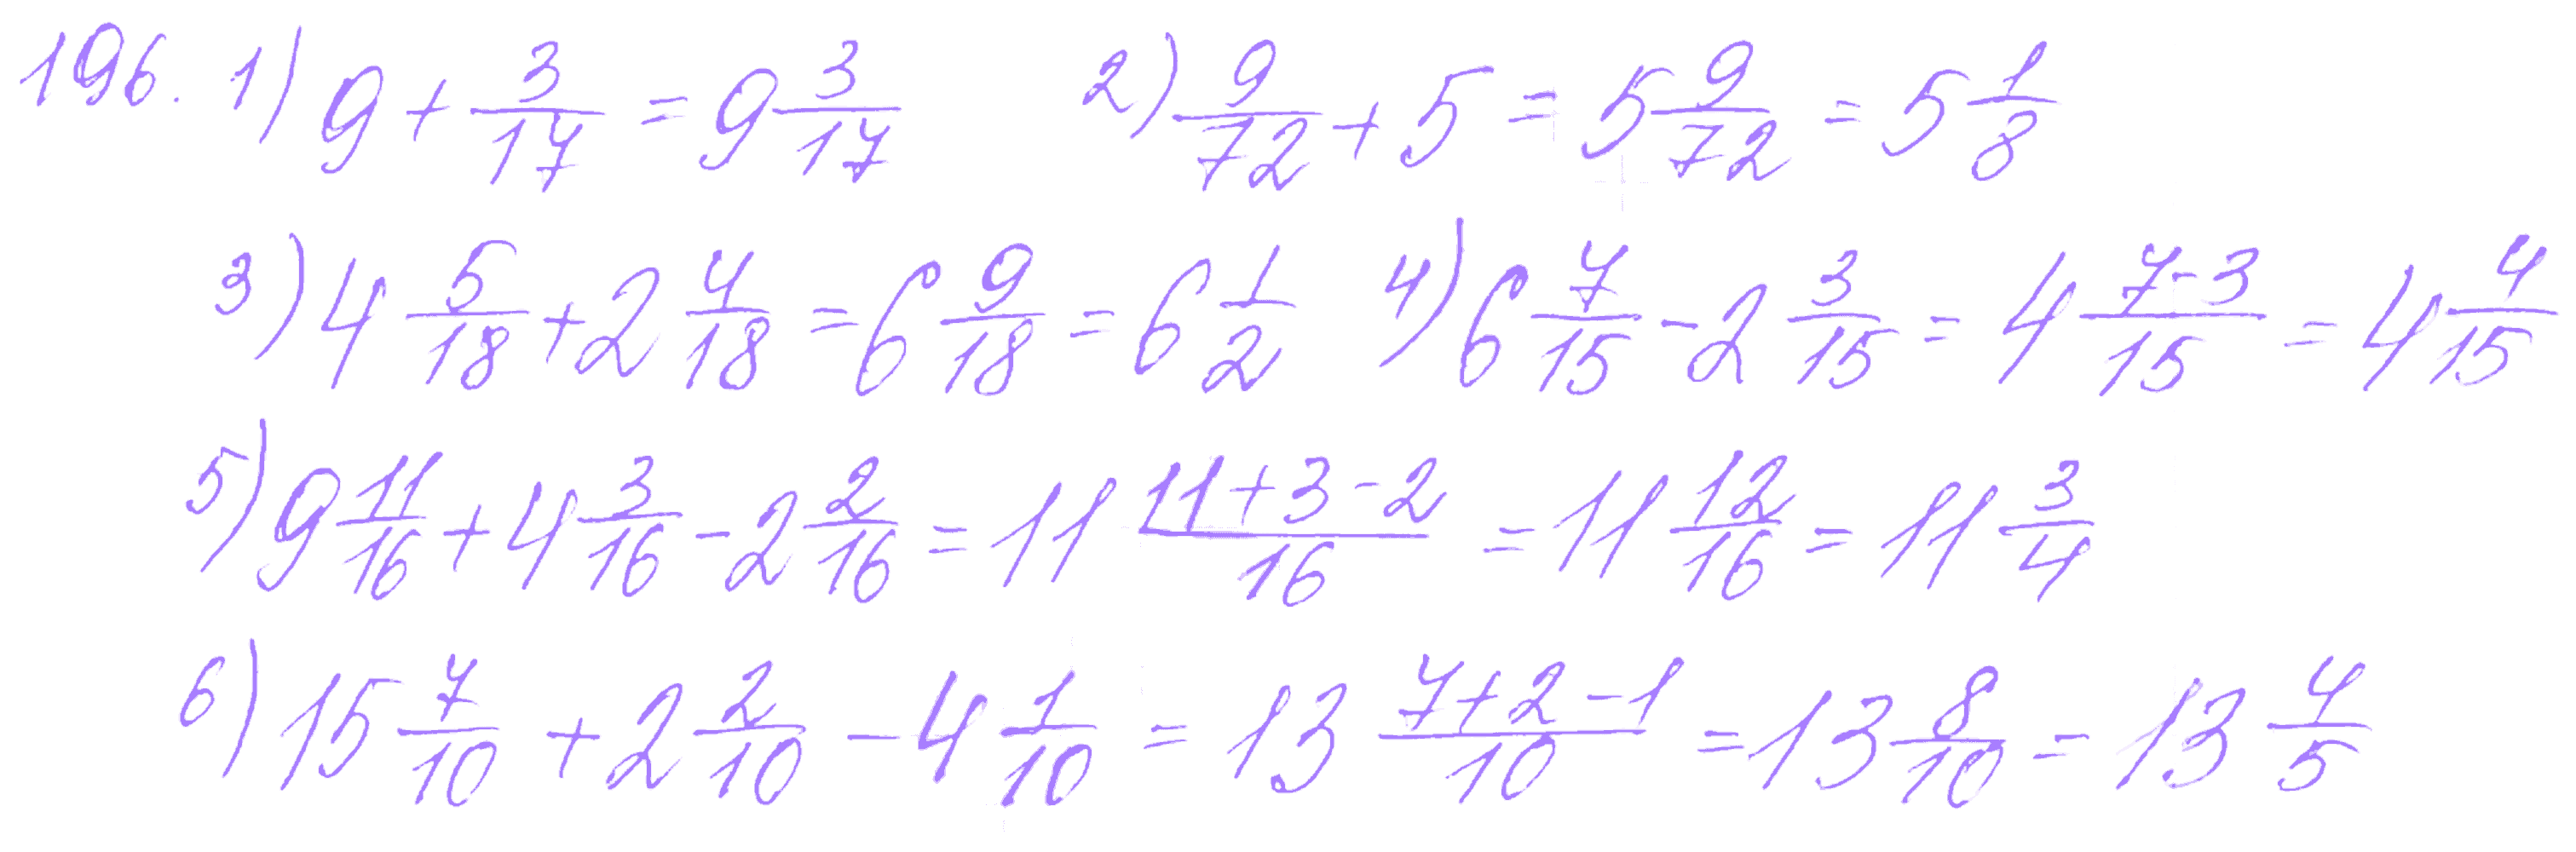 196. 1) 9 + 3/17 = 9 3/17   2) 9/72 + 5 = 5 9/72 = 5 1/8
3) 4 5/18 + 2 4/18 = 6 9/18 = 6 1/2   4) 6 7/15 - 2 3/15 = 4 (7-3)/15 = 4 4/15
5) 9 11/16 + 4 3/16 - 2 2/16 = 11 (11+3-2)/16 = 11 12/16 = 11 3/4
6) 15 7/10 + 2 2/10 - 4 1/10 = 13 (7+2-1)/10 = 13 8/10 = 13 4/5